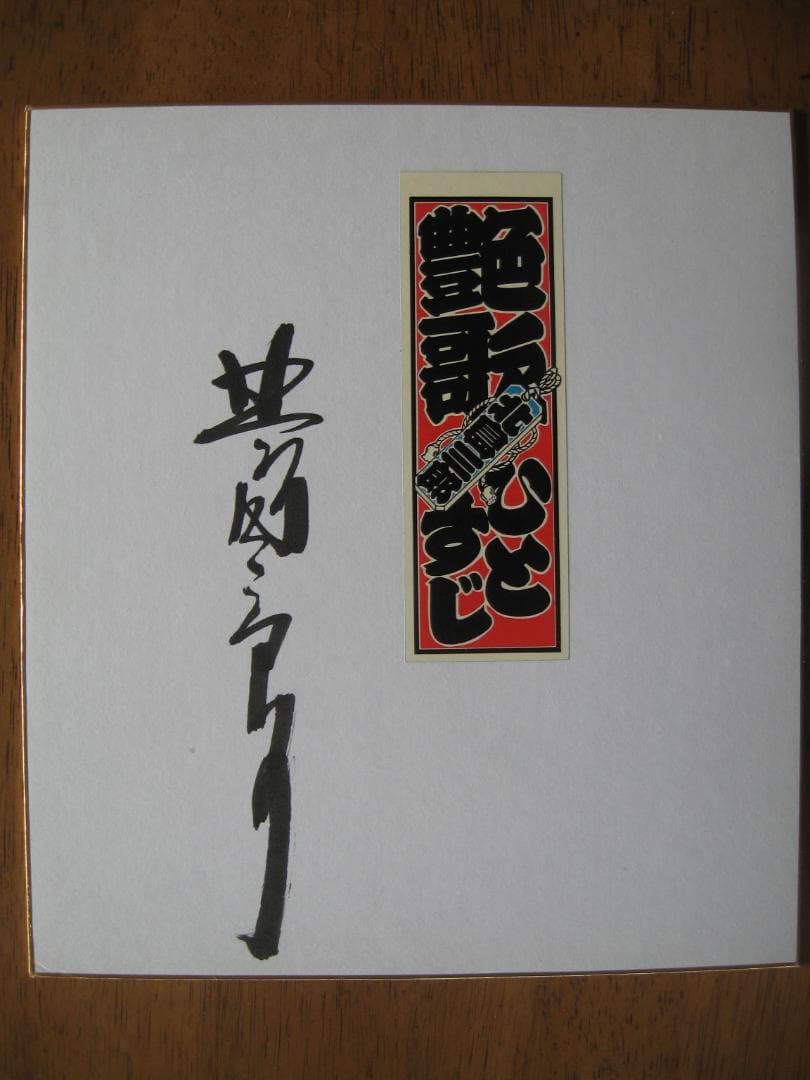 艶歌ひとすじ
北島三郎
北島三郎